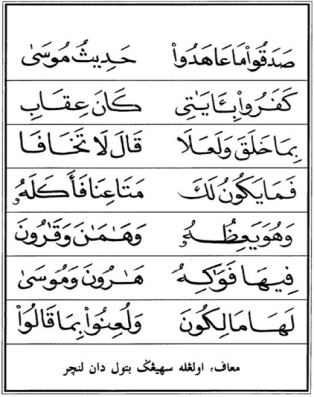 صَدَقُوا۟ مَا عَاهَدُوا۟ حَدِيثُ مُوسَىٰ
كَفَرُوا۟ بِـَٔايَـٰتِى كَانَ عِقَابِ
بِمَا خَلَقَ وَلَعَلَا قَالَ لَا تَخَافَا
فَمَا يَكُونُ لَكَ مَتَـٰعِنَا فَأَكَلَهُ
وَهُوَ يَعِظُهُۥ وَهَـٰمَـٰنَ وَقَـٰرُونَ
فِيهَا فَوَٰكِهُ هَـٰرُونَ وَمُوسَىٰ
لَهَا مَـٰلِكُونَ وَلُعِنُوا۟ بِمَا قَالُوا۟
معاف، اولڠله سهيڠݢ بتول دان لنچر